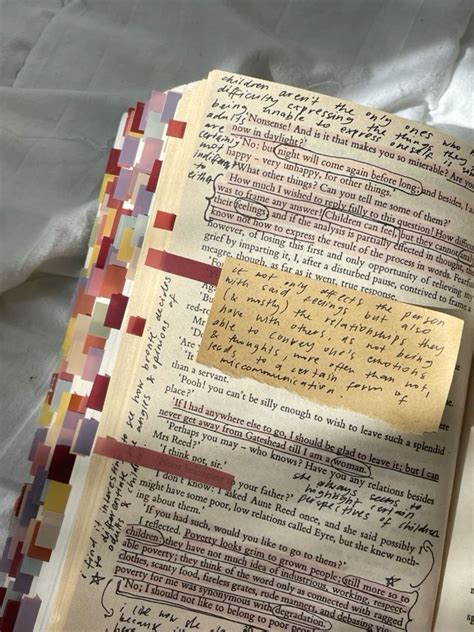 children aren't the only ones who
difficulty expressing the things they
being unable to express oneself
adults
are
certainly
not
indifferent
to
either
'Nonsense! And is it that makes you so miserable? Are
now in daylight?'
'No: but night will come again before long; and besides, I a
happy – very unhappy, for other things.'
'What other things? Can you tell me some of them?'
How much I wished to reply fully to this question! How diffi
was to frame any answer! Children can feel, but they cannot
their feelings; and if the analysis is partially effected in thought
know not how to express the result of the process in words. Fearfu
however, of losing this first and only opportunity of relieving
grief by imparting it, I, after a disturbed pause, contrived to frame
meagre, though, as far as it went, true response.
it not only affects the person
with said feelings but also
(& mostly) the relationships they
have with others, as not being
able to convey one's emotions
& thoughts, more often than not,
leads to a certain form of
miscommunication.
than a servant.'
'Pooh! you can't be silly enough to wish to leave such a splendid
place?'
'If I had anywhere to go, I should be glad to leave it; but I can
never get away from Gateshead till I am a woman.'
'Perhaps you may – who knows? Have you any relations besides
Mrs Reed?'
'I think not, sir.'
your father?'
'I don't know: I asked Aunt Reed once, and she said possibly I
might have some poor, low relations called Eyre, but she knew noth-
ing about them.'
'If you had such, would you like to go to them?'
I reflected. Poverty looks grim to grown people; still more so to
children; they have not much idea of industrious, working, respect-
able poverty; they think of the word only as connected with ragged
clothes, scanty food, fireless grates, rude manners, and debasing
poverty for me was synonymous with degradation.
'No; I should not like to belong to poor people,'
she always seems to
highlight certain
perspectives of children
i find it interesting to see how brontë decides
to differentiate the angles & opinions of
adults & children
i like how she
because